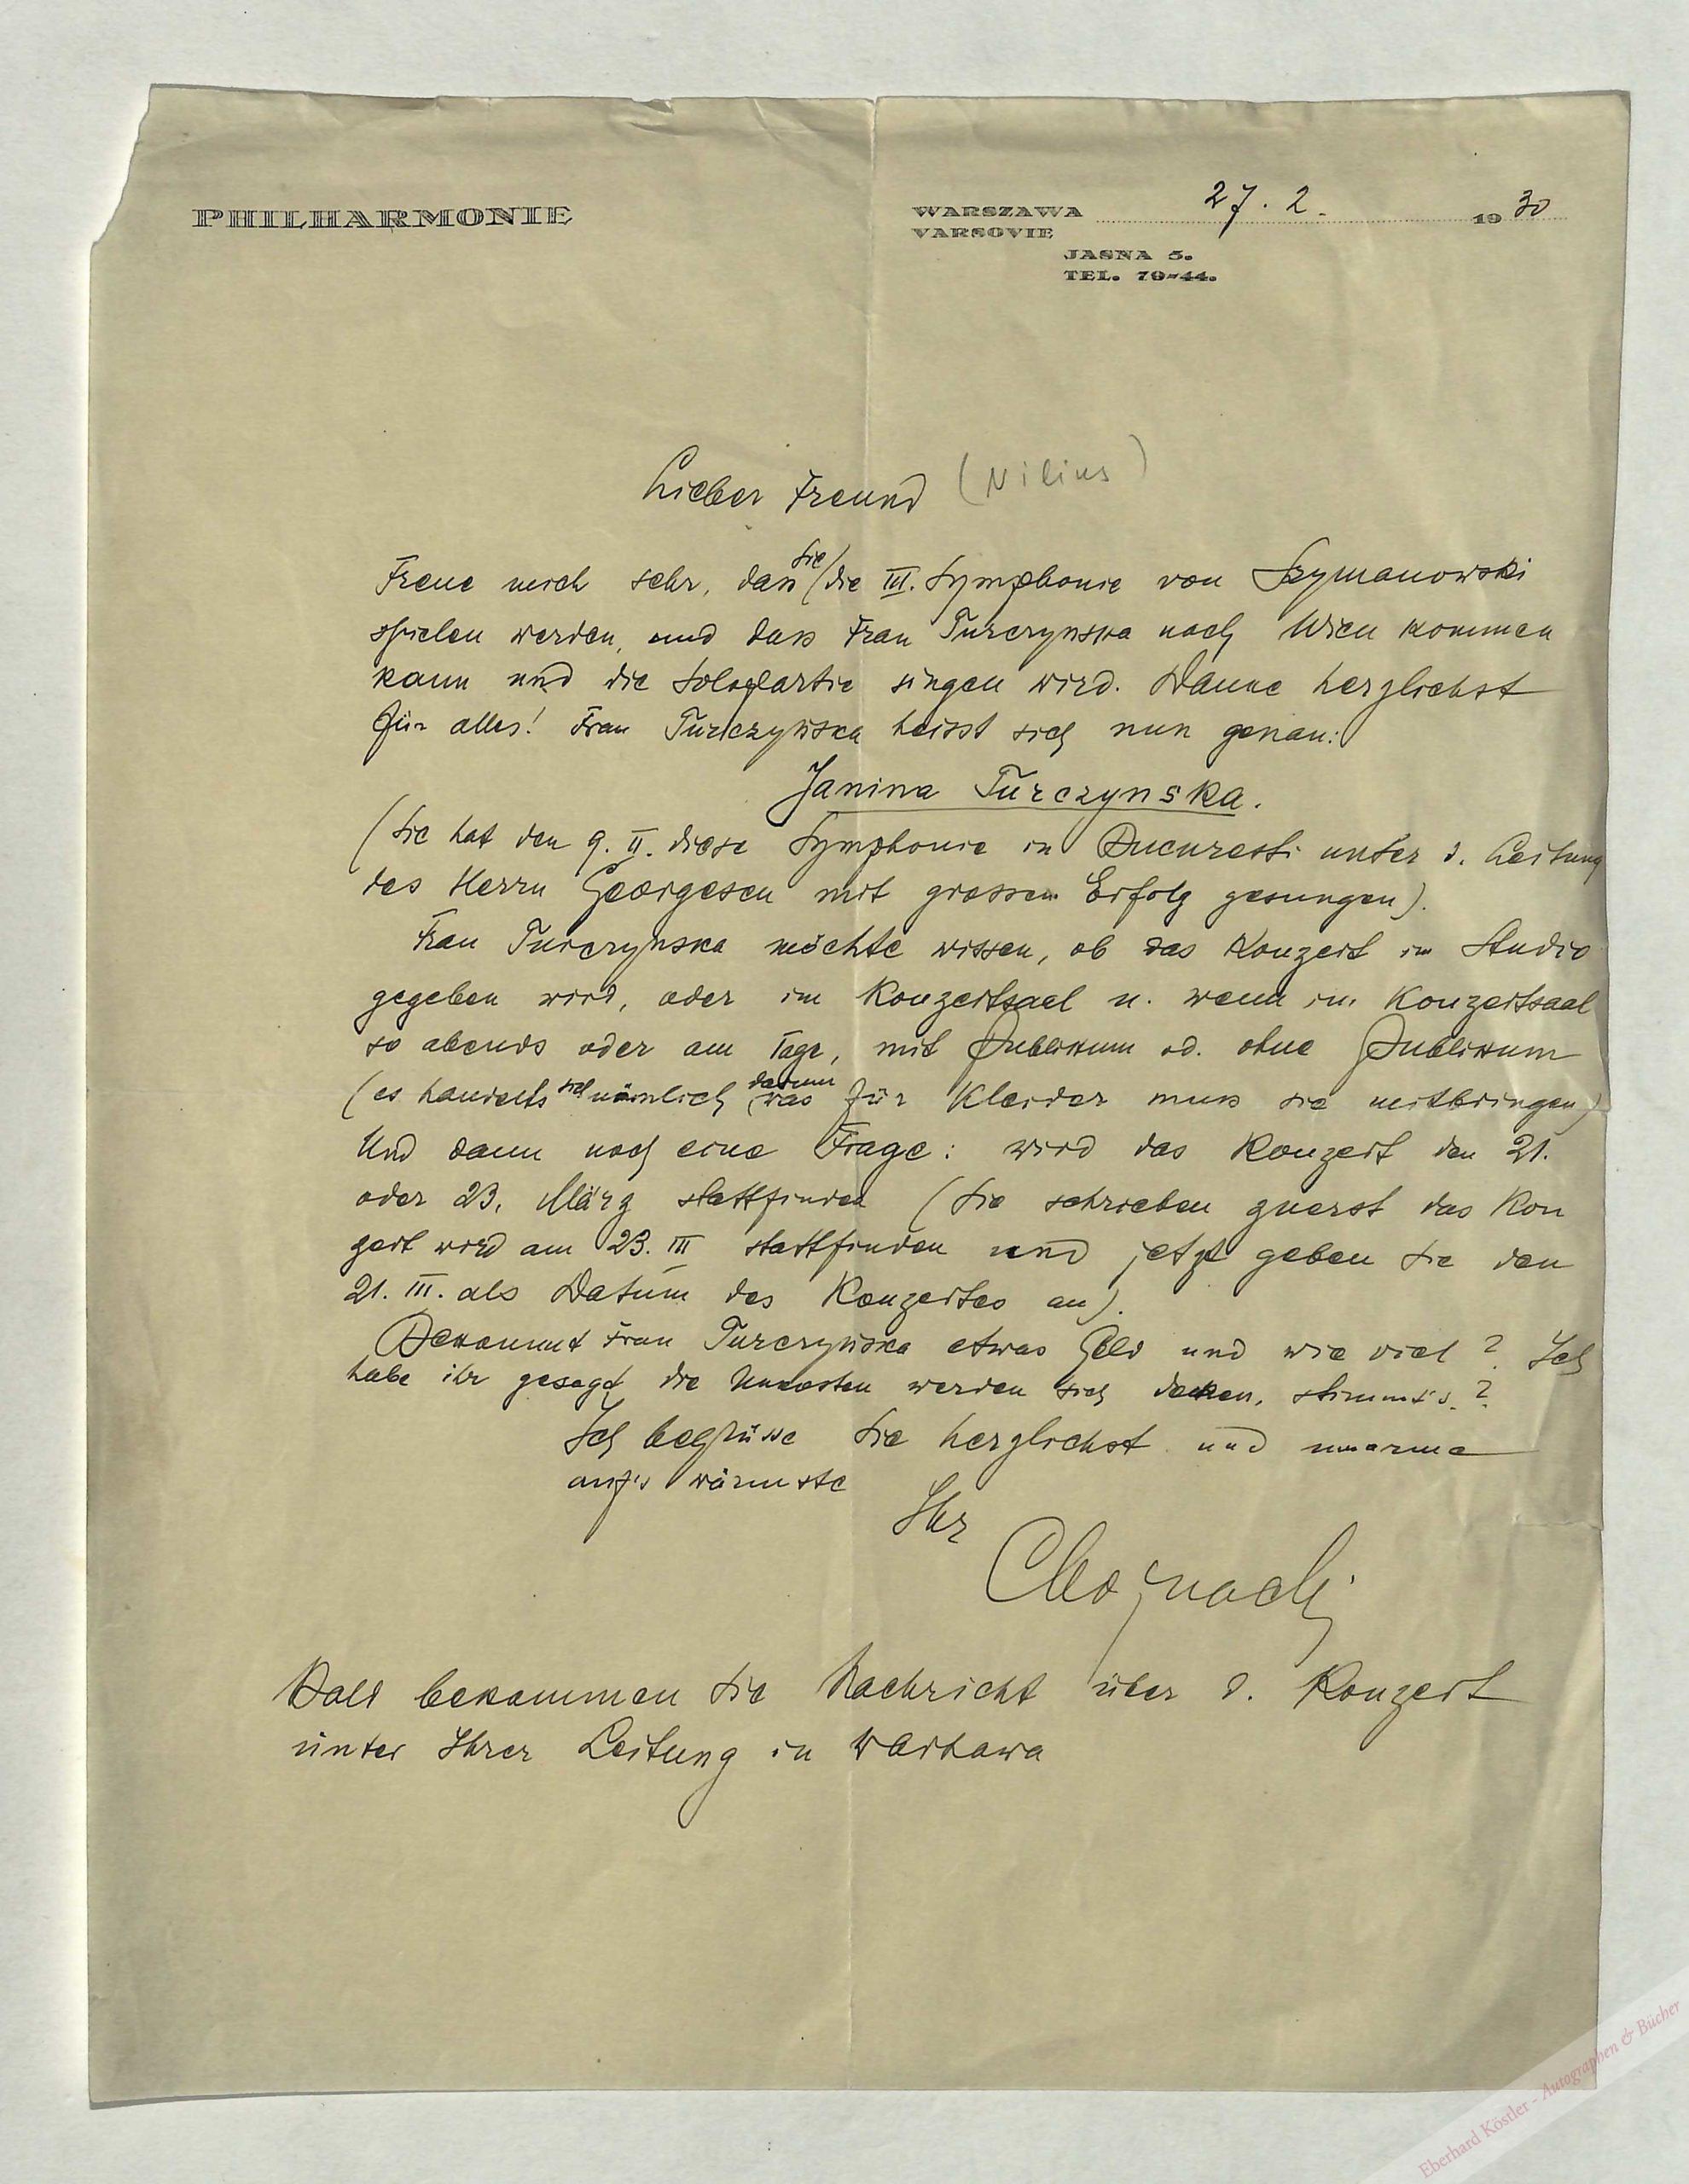 PHILHARMONIE
WARSZAWA 27. 2. 1930
VARSOVIE
JASNA 5.
TEL. 70-44.
Lieber Freund (Nilius)
Freue mich sehr, dass Sie die III. Symphonie von Szymanowski
spielen werden, und dass Frau Turczynska nach Wien kommen
kann und die Solopartie singen wird. Danke herzlichst
für alles! Frau Turczynska heisst sich nun genau:
Janina Turczynska.
(Sie hat den 9. II. diese Symphonie in Bucuresti unter d. Leitung
des Herrn Georgescu mit grossem Erfolg gesungen).
Frau Turczynska möchte wissen, ob das Konzert im Studio
gegeben wird, oder im Konzertsael u. wenn im Konzertsaal
so abends oder am Tage, mit Publikum od. ohne Publikum
(es handelts sich nämlich darum was für Kleider muss sie mitbringen)
Und dann noch eine Frage: wird das Konzert den 21.
oder 23. März stattfinden (Sie schrieben zuerst das Kon
zert wird am 23. III stattfinden und jetzt geben Sie den
21. III. als Datum des Konzertes an).
Bekommt Frau Turczynska etwas Geld und wie viel? Ich
habe ihr gesagt die Unkosten werden sich decken, stimmt's?
Ich begrüsse Sie herzlichst und umarme
auf's wärmste
Ihr
Bald bekommen Sie Nachricht über d. Konzert
unter Ihrer Leitung in
Eberhard Köstler - Autographen & Bücher